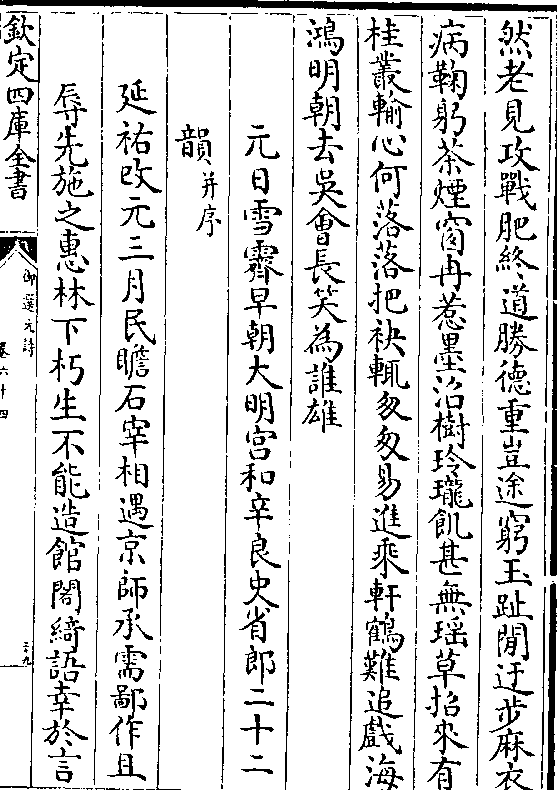 然老見攻戰肥終道勝德重豈途窮玉趾閒迂步麻衣
病鞠躬茶煙窗冉惹墨沼樹玲瓏飢甚無瑶草招來有
桂叢輸心何落落把袂輒匆匆易進乘軒鶴難追戲海
鴻明朝去吳會長笑為誰雄
元日雪霽早朝大明宮和辛良史省郎二十二
韻并序
延祐改元三月民瞻石宰相遇京師承需鄙作且
辱先施之惠林下朽生不能造館閣綺語幸於言
欽定四庫全書
御選元詩
卷六十四
三九